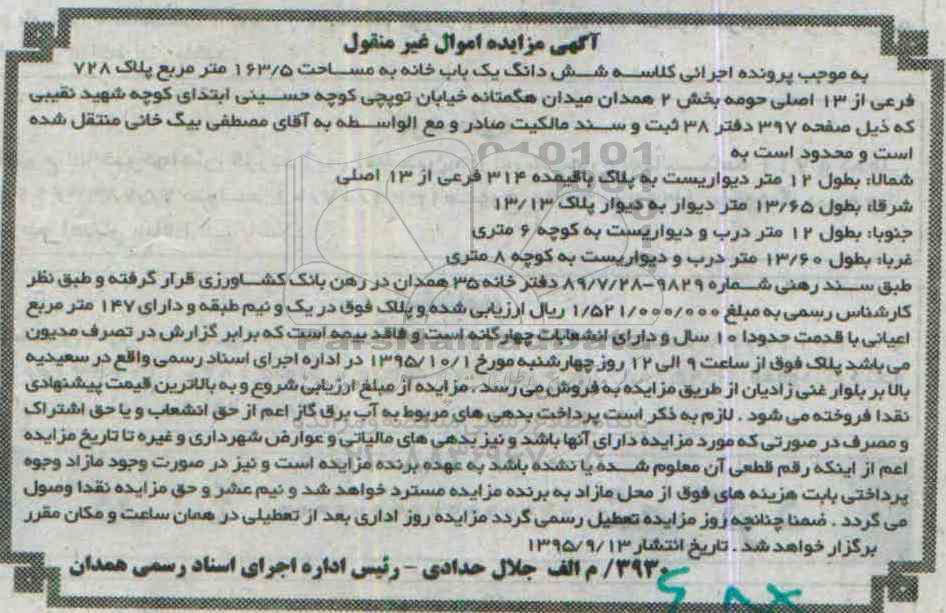 آگهی مزایده اموال غیر منقول
به موجب پرونده اجرائی کلاسه شش دانگ یک باب خانه به مساحت ۱۶۳/۵ متر مربع پلاک ۷۲۸
فرعی از ۱۳ اصلی حومه بخش ۲ همدان میدان هگمتانه خیابان توپچی کوچه حسینی ابتدای کوچه شهید نقیبی
که ذیل صفحه ۳۹۷ دفتر ۳۸ ثبت و سند مالکیت صادر و مع الواسطه به آقای مصطفی بیگ خانی منتقل شده
است و محدود است به
شمالا: بطول ۱۲ متر دیواریست به پلاک باقیمده ۳۱۴ فرعی از ۱۳ اصلی
شرقا: بطول ۱۳/۶۵ متر دیوار به دیوار پلاک ۱۳/۱۳
جنوبا: بطول ۱۲ متر درب و دیواریست به کوچه ۶ متری
غربا: بطول ۱۳/۶۰ متر درب و دیواریست به کوچه ۸ متری
طبق سند رهنی شماره ۹۸۲۹-۸۹/۷/۲۸ دفتر خانه ۳۵ همدان در رهن بانک کشاورزی قرار گرفته و طبق نظر
کارشناس رسمی به مبلغ ۱/۵۲۱/۰۰۰/۰۰۰ ریال ارزیابی شده و پلاک فوق در یک و نیم طبقه و دارای ۱۴۷ متر مربع
اعیانی با قدمت حدودا ۱۰ سال و دارای انشعابات چهارگانه است و فاقد بیمه است که برابر گزارش در تصرف مدیون
می باشد پلاک فوق از ساعت ۹ الی ۱۲ روز چهارشنبه مورخ ۱۳۹۵/۱۰/۱ در اداره اجرای اسناد رسمی واقع در سعیدیه
بالا بر بلوار غنی زادیان از طریق مزایده به فروش می رسد . مزایده از مبلغ ارزیابی شروع و به بالاترین قیمت پیشنهادی
نقدا فروخته می شود . لازم به ذکر است پرداخت بدهی های مربوط به آب برق گاز اعم از حق انشعاب و یا حق اشتراک
و مصرف در صورتی که مورد مزایده دارای آنها باشد و نیز بدهی های مالیاتی و عوارض شهرداری و غیره تا تاریخ مزایده
اعم از اینکه رقم قطعی آن معلوم شده یا نشده باشد به عهده برنده مزایده است و نیز در صورت وجود مازاد وجوه
پرداختی بابت هزینه های فوق از محل مازاد به برنده مزایده مسترد خواهد شد و نیم عشر و حق مزایده نقدا وصول
می گردد . ضمنا چنانچه روز مزایده تعطیل رسمی گردد مزایده روز اداری بعد از تعطیلی در همان ساعت و مکان مقرر
برگزار خواهد شد . تاریخ انتشار ۱۳۹۵/۹/۱۳
۳۹۳۰/ م الف جلال حدادی - رئیس اداره اجرای اسناد رسمی همدان